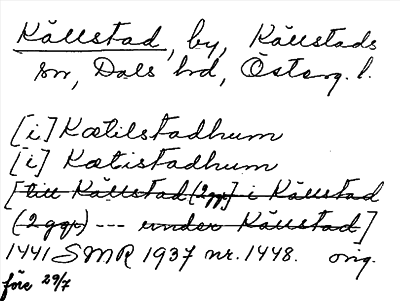 Källstad, by, Källstads
sn, Dals hd, Österg. l.
[i] Kætilstadhum
[i] Kætistadhum
[till Källstad (2 ggr] i Källstad
(2 ggr) --- under Källstad]
1441 SMR 1937 nr. 1448. orig.
före 29/7